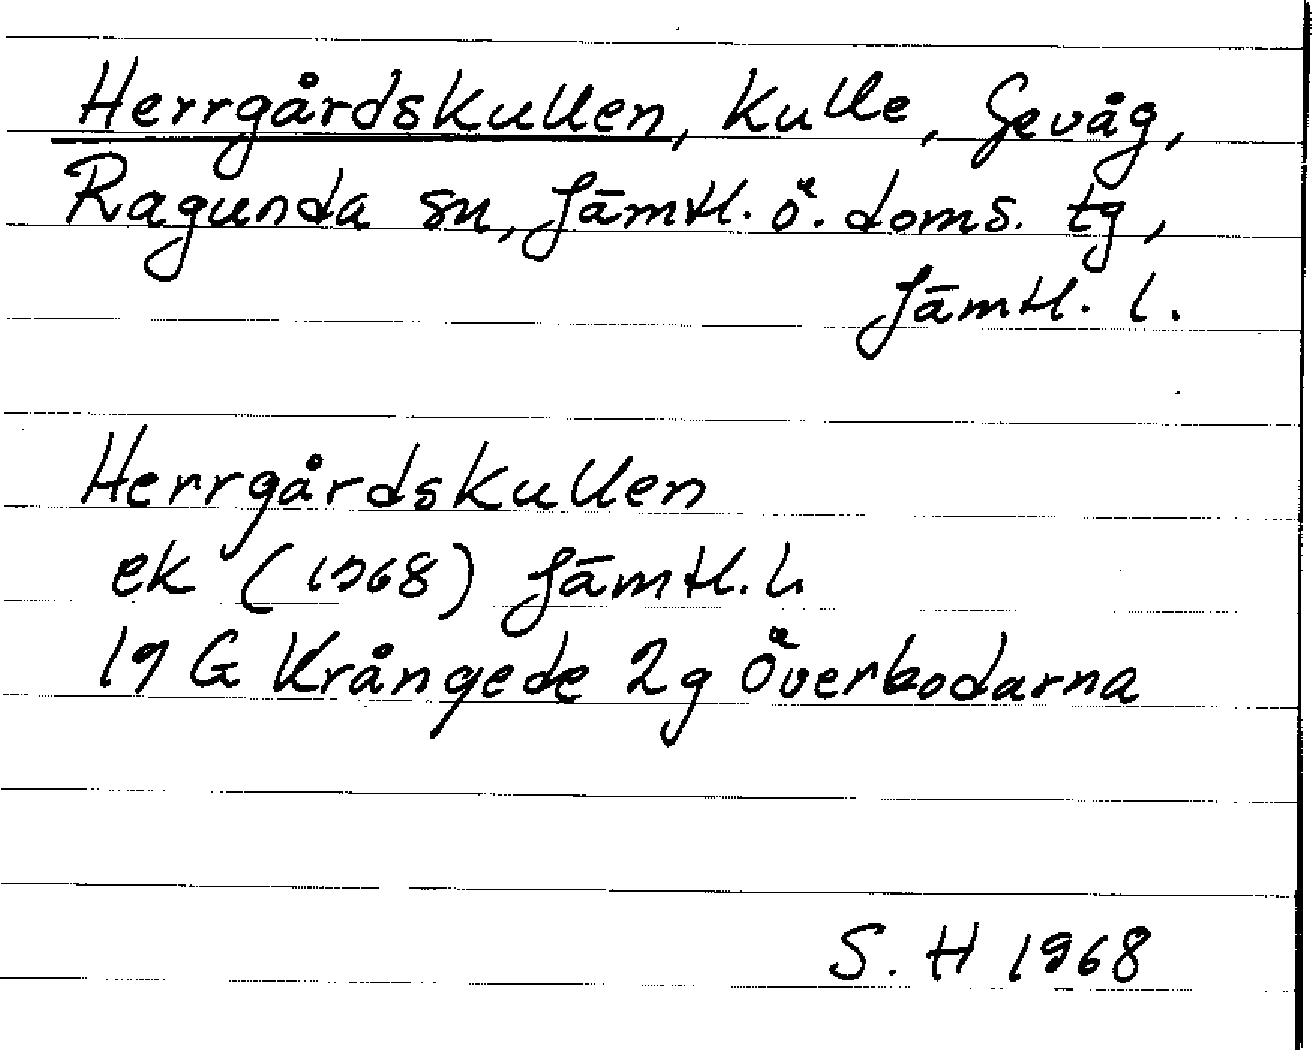 Herrgårdskullen, Kulle, Gevåg,
Ragunda sn, Jämtl. ö. doms. tg,
Jämtl. l.
Herrgårdskullen
ek (1968) Jämtl. L
19 G Krångede 2g Överbodarna
S. H 1968